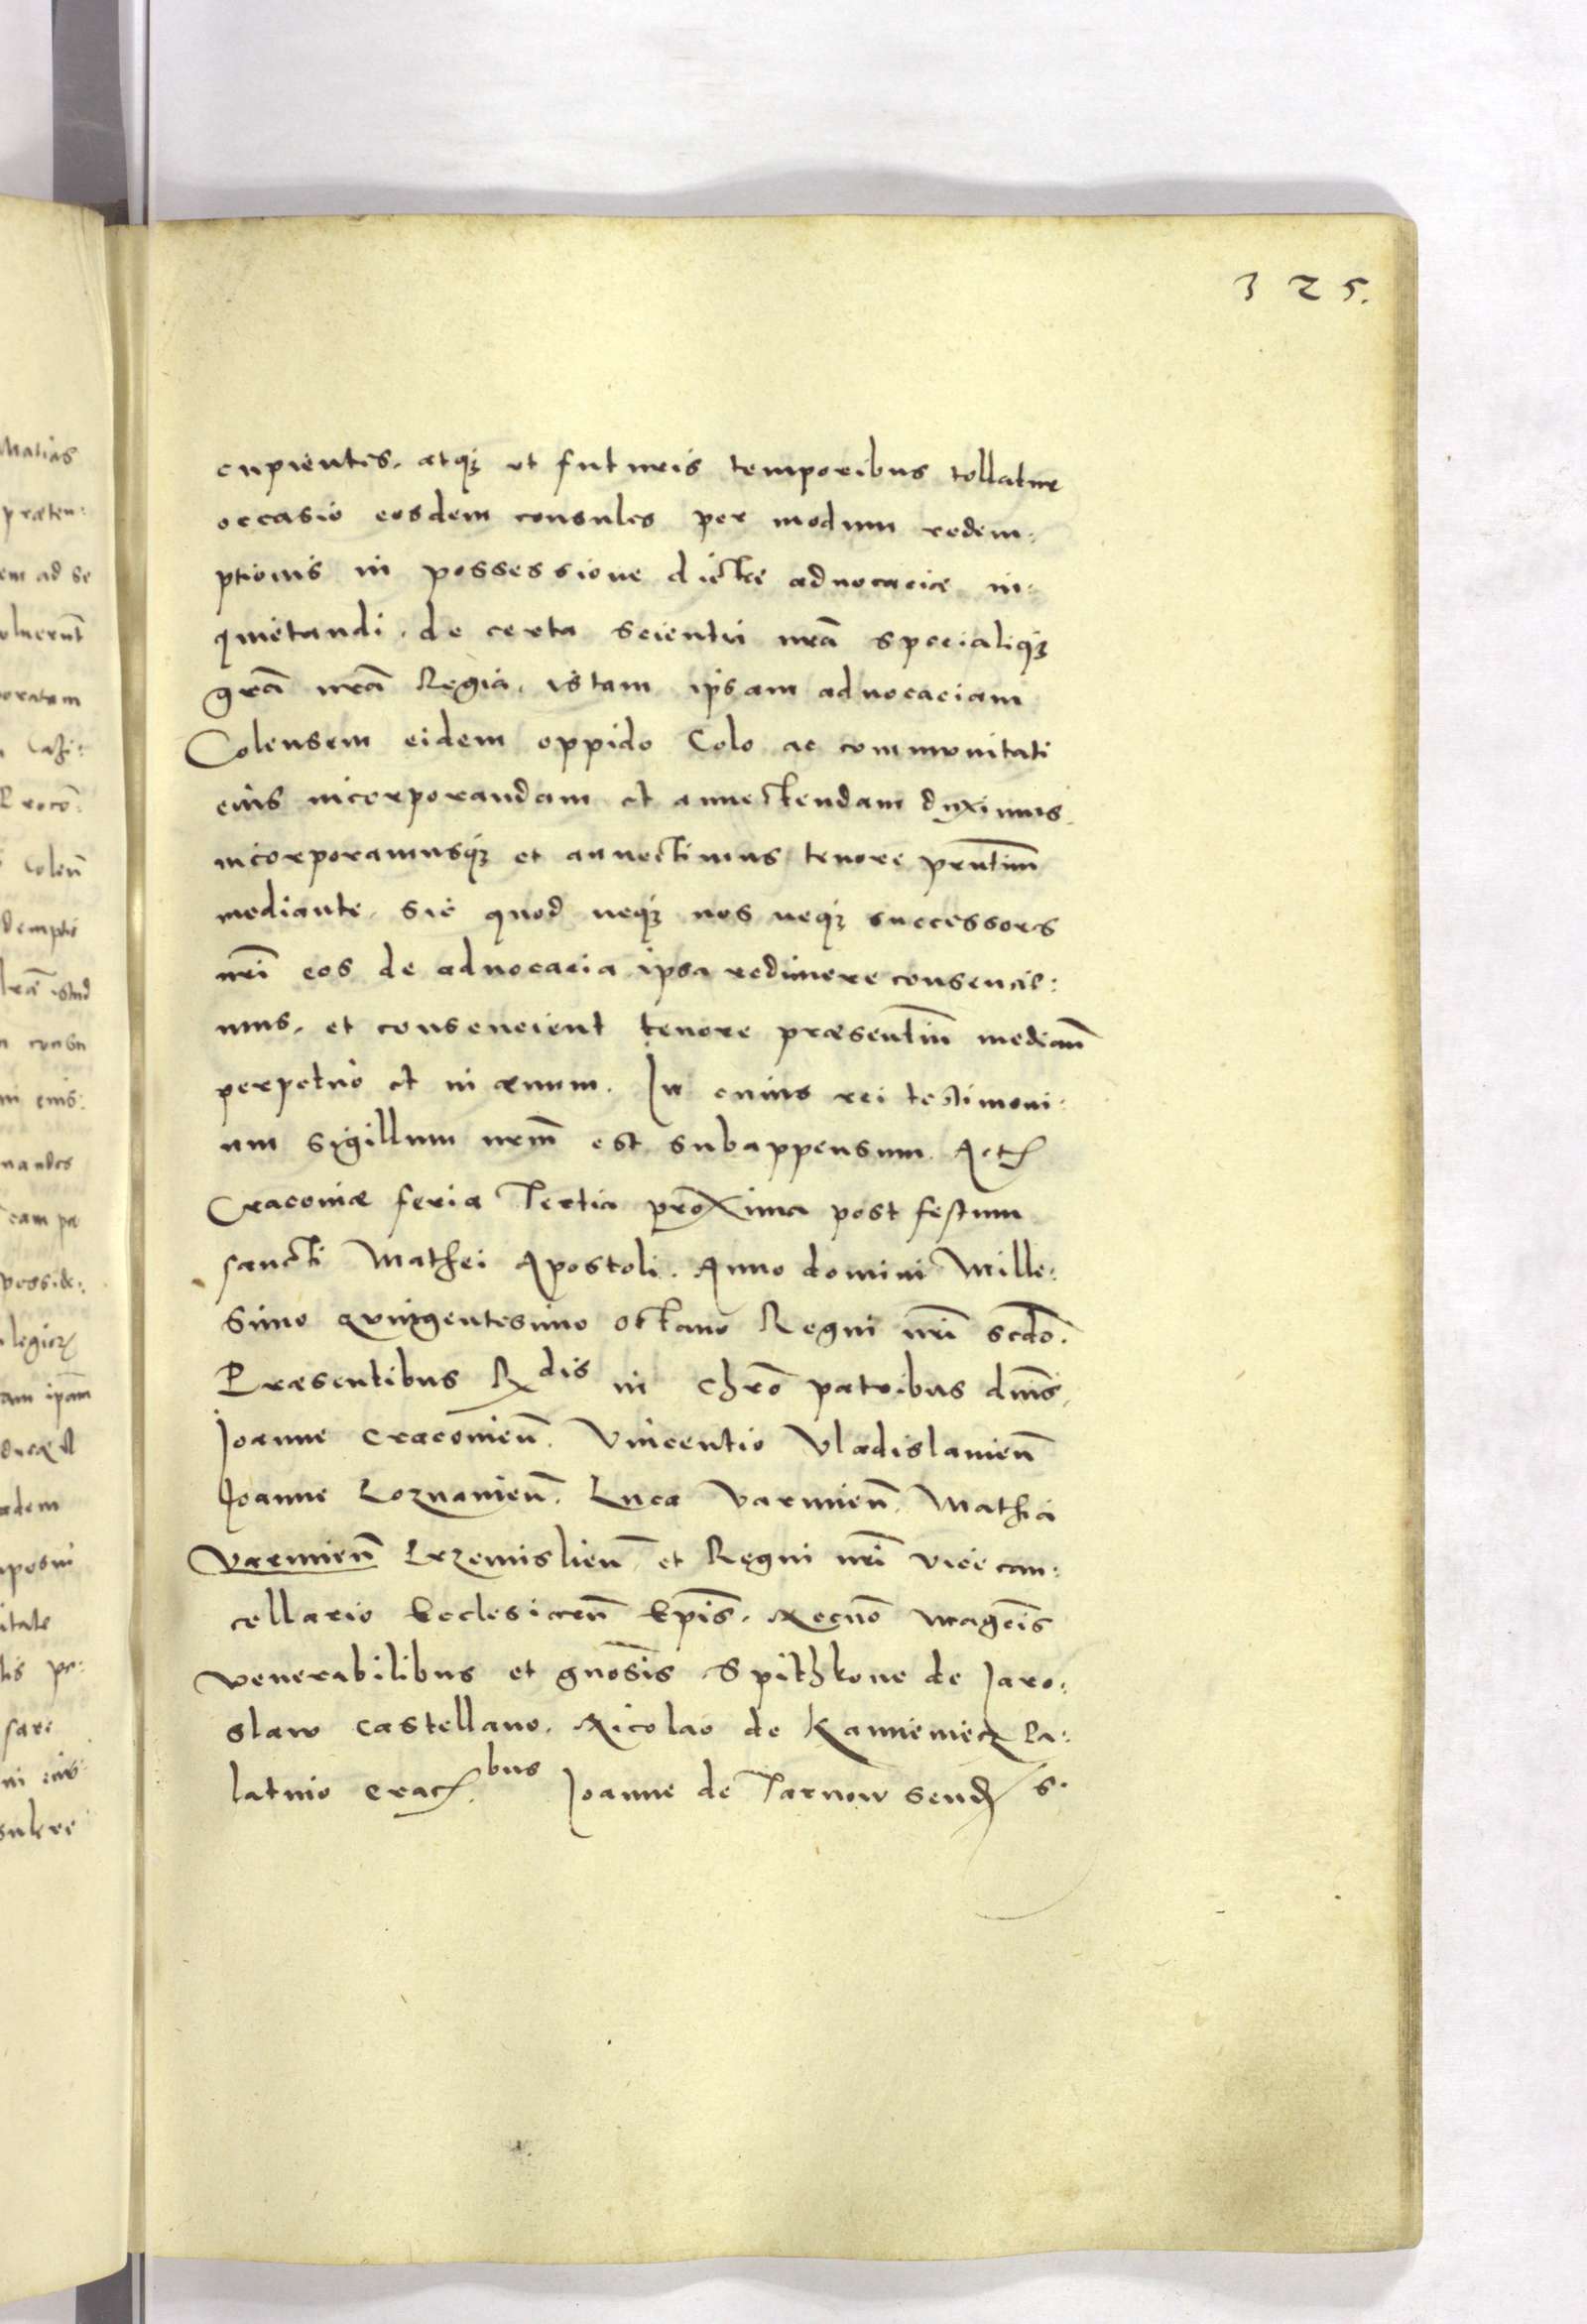 325.
cupientes. atq₃ ut futuris temporibus tollatur
occasio eosdem consules per modum redem:
ptionis in possessione dictæ aduocaciæ in:
quietandi. de certa scientia nrã specialiq₃
grã nrã Regia. istam ipsam aduocaciam
Colensem eidem oppido Colo ac communitati
eius incorporandam et annectendam duximus.
incorporamusq₃ et annectimus tenore prntium̃
mediante. sic quod neq₃ nos neq₃ successores
nrĩ eos de aduocacia ipsa redimere consencie:
mus. et consencient tenore præsentiũ median̄
perpetuo et in æuum. In cuius rei testimoni:
um sigillum nrm̃ est subappensum. Act
Cracouiæ feria Tertia proxima post festum
sancti Mathei Apostoli. Anno domini Mille:
simo quingentesimo octauo Regni nrĩ scdõ.
Præsentibus Rdis in Chrõ patribus dnĩs.
Joanne Cracouien̄. Vincentio Vladislauien̄
Joanne Poznanien̄. Luca Varmien̄. Mathia
Varmien̄ Przemislien̄ et Regni nrĩ vice can:
cellario Ecclesiarũ Epĩs. Necnõ Magcĩs
venerabilibus et gnõsis Spithkone de Jaro:
slaw Castellano. Nicolao de Kamieniecz Pa:
latino Crac.bus Joanne de Tarnow Send s.
Matias
præten:
em ad se
oluerunt
Colen̄
demptio
nandes
eam pa
posside:
adem